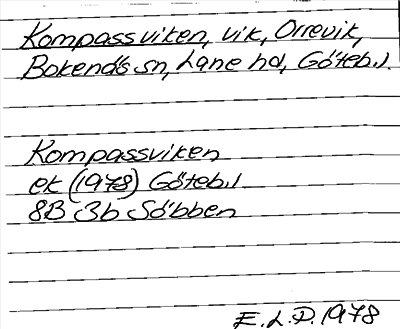 Kompassviken, vik, Orrevik,
Bokenäs sn, Lane hd, Göteb.l.
Kompassviken
ek (1978) Göteb.l
8B 3b Säbben
E. L. P. 1978